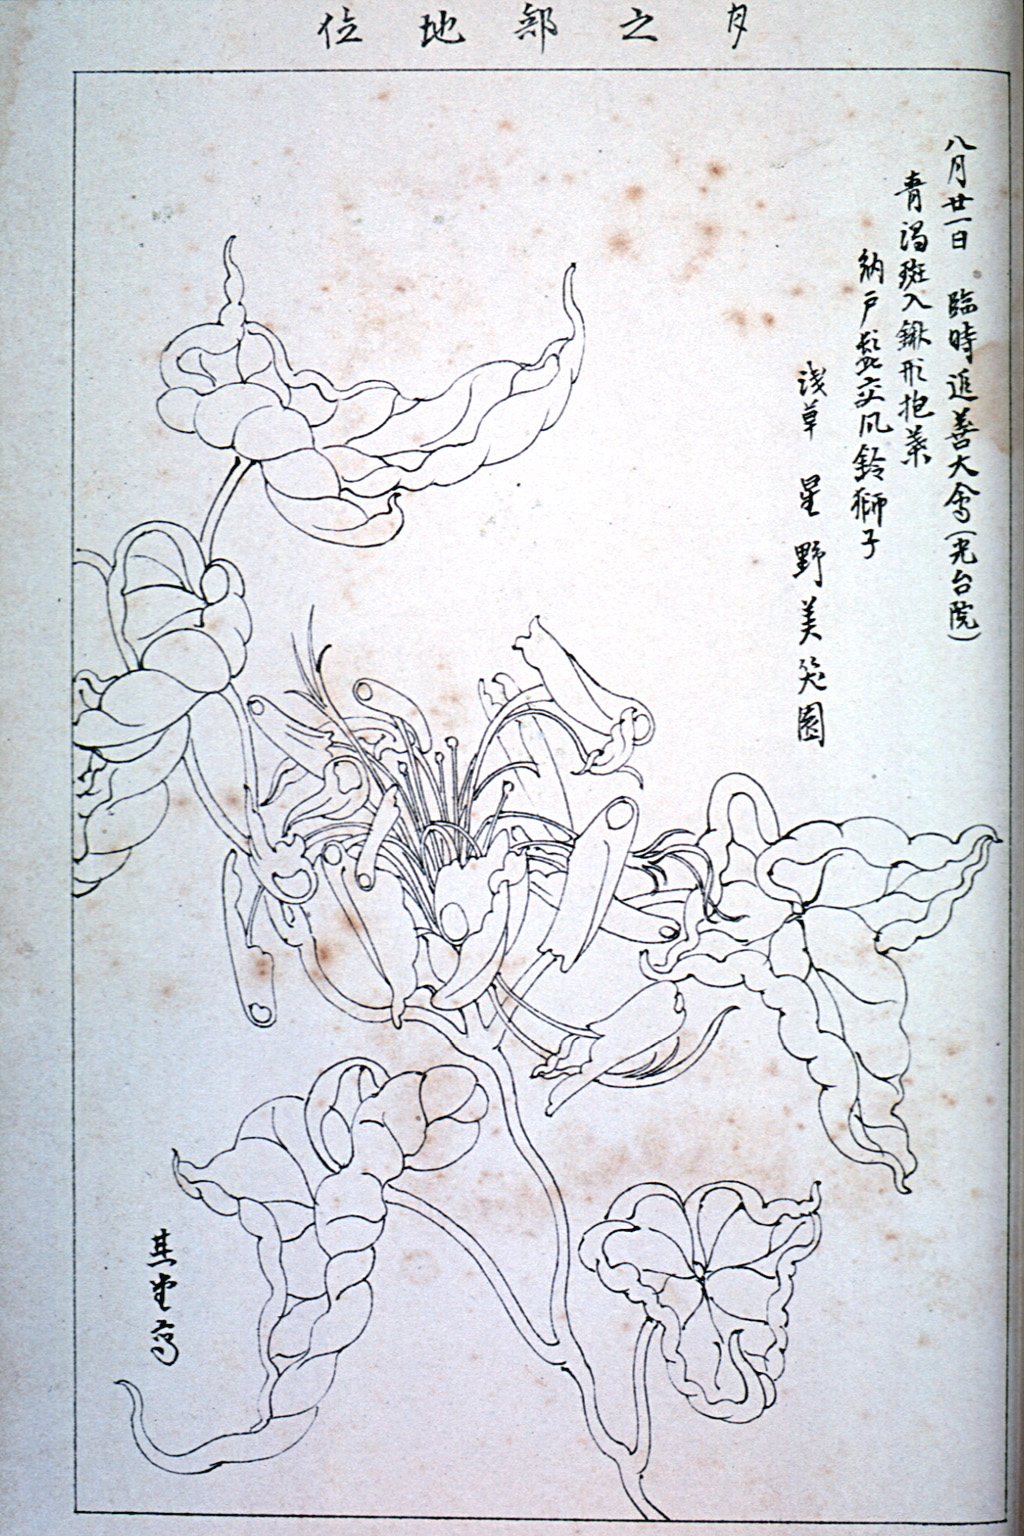 月之部地位
八月廿一日 臨時追善大會(光台院)
青渦斑入鍬形抱葉
納戸髭交風鈴獅子
浅草 星野美笑園
其堂写